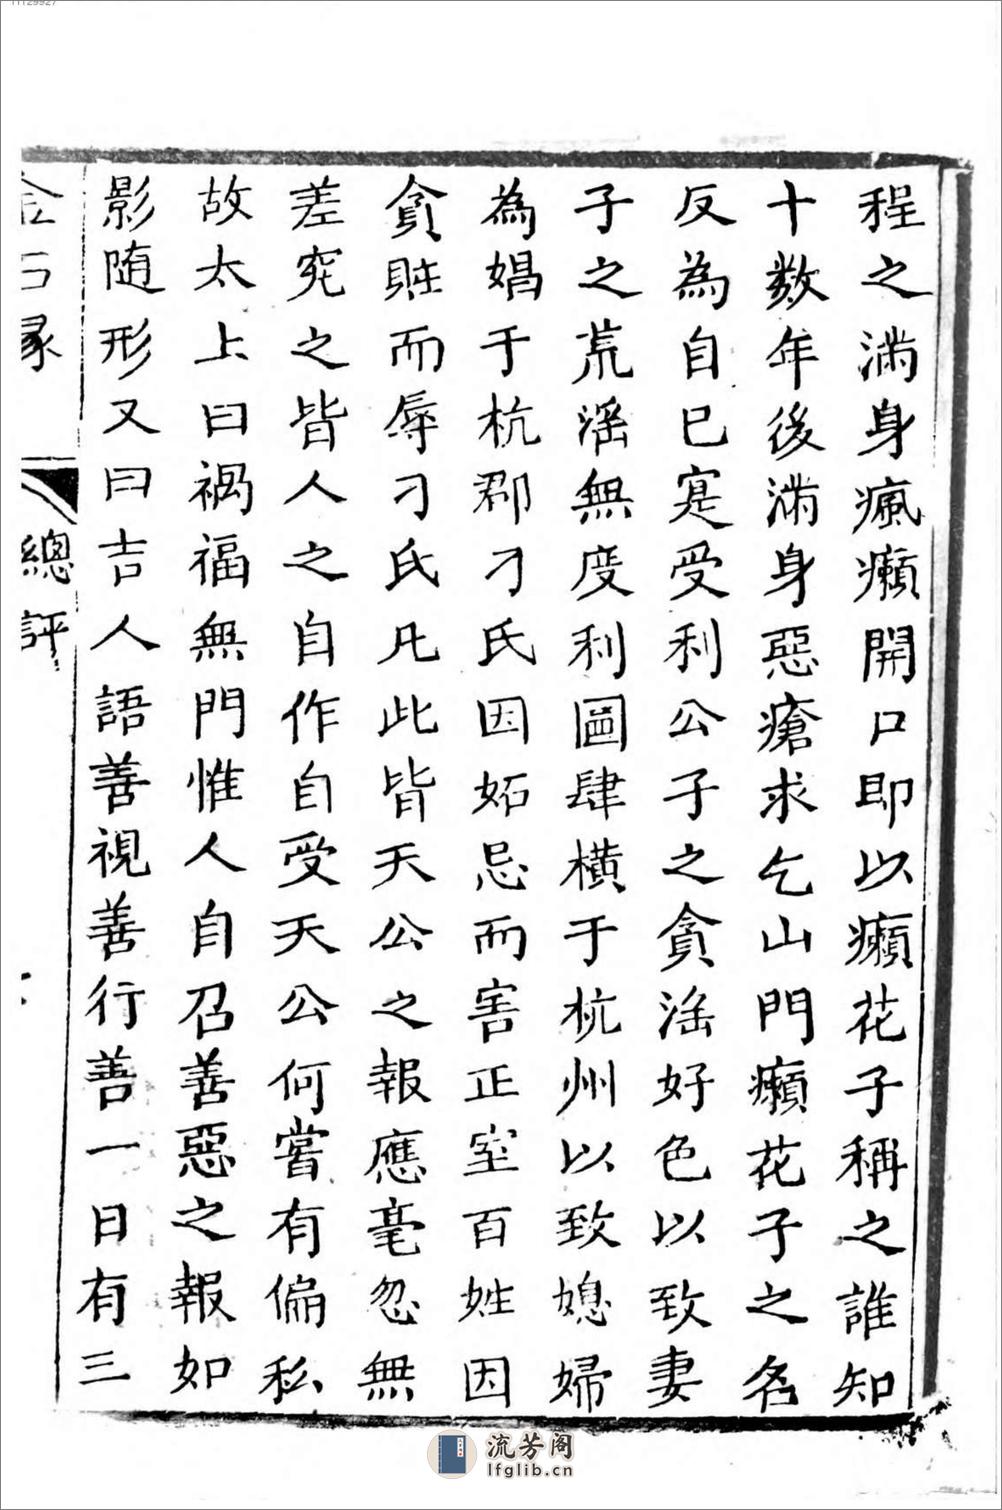 11129927
程之滿身瘋癩開口即以癩花子稱之誰知
十数年後滿身惡瘡求乞山門癩花子之名
反為自已寔受利公子之貪淫好色以致妻
子之荒淫無度利圖肆横于杭州以致媳婦
為娼于杭郡刁氏因妬忌而害正室百姓因
貪賍而辱刁氏凡此皆天公之報應毫忽無
差究之皆人之自作自受天公何嘗有偏私
故太上曰禍福無門惟人自召善惡之報如
影随形又曰吉人語善視善行善一日有三
金石縁
總評
流芳阁
lfglib.cn